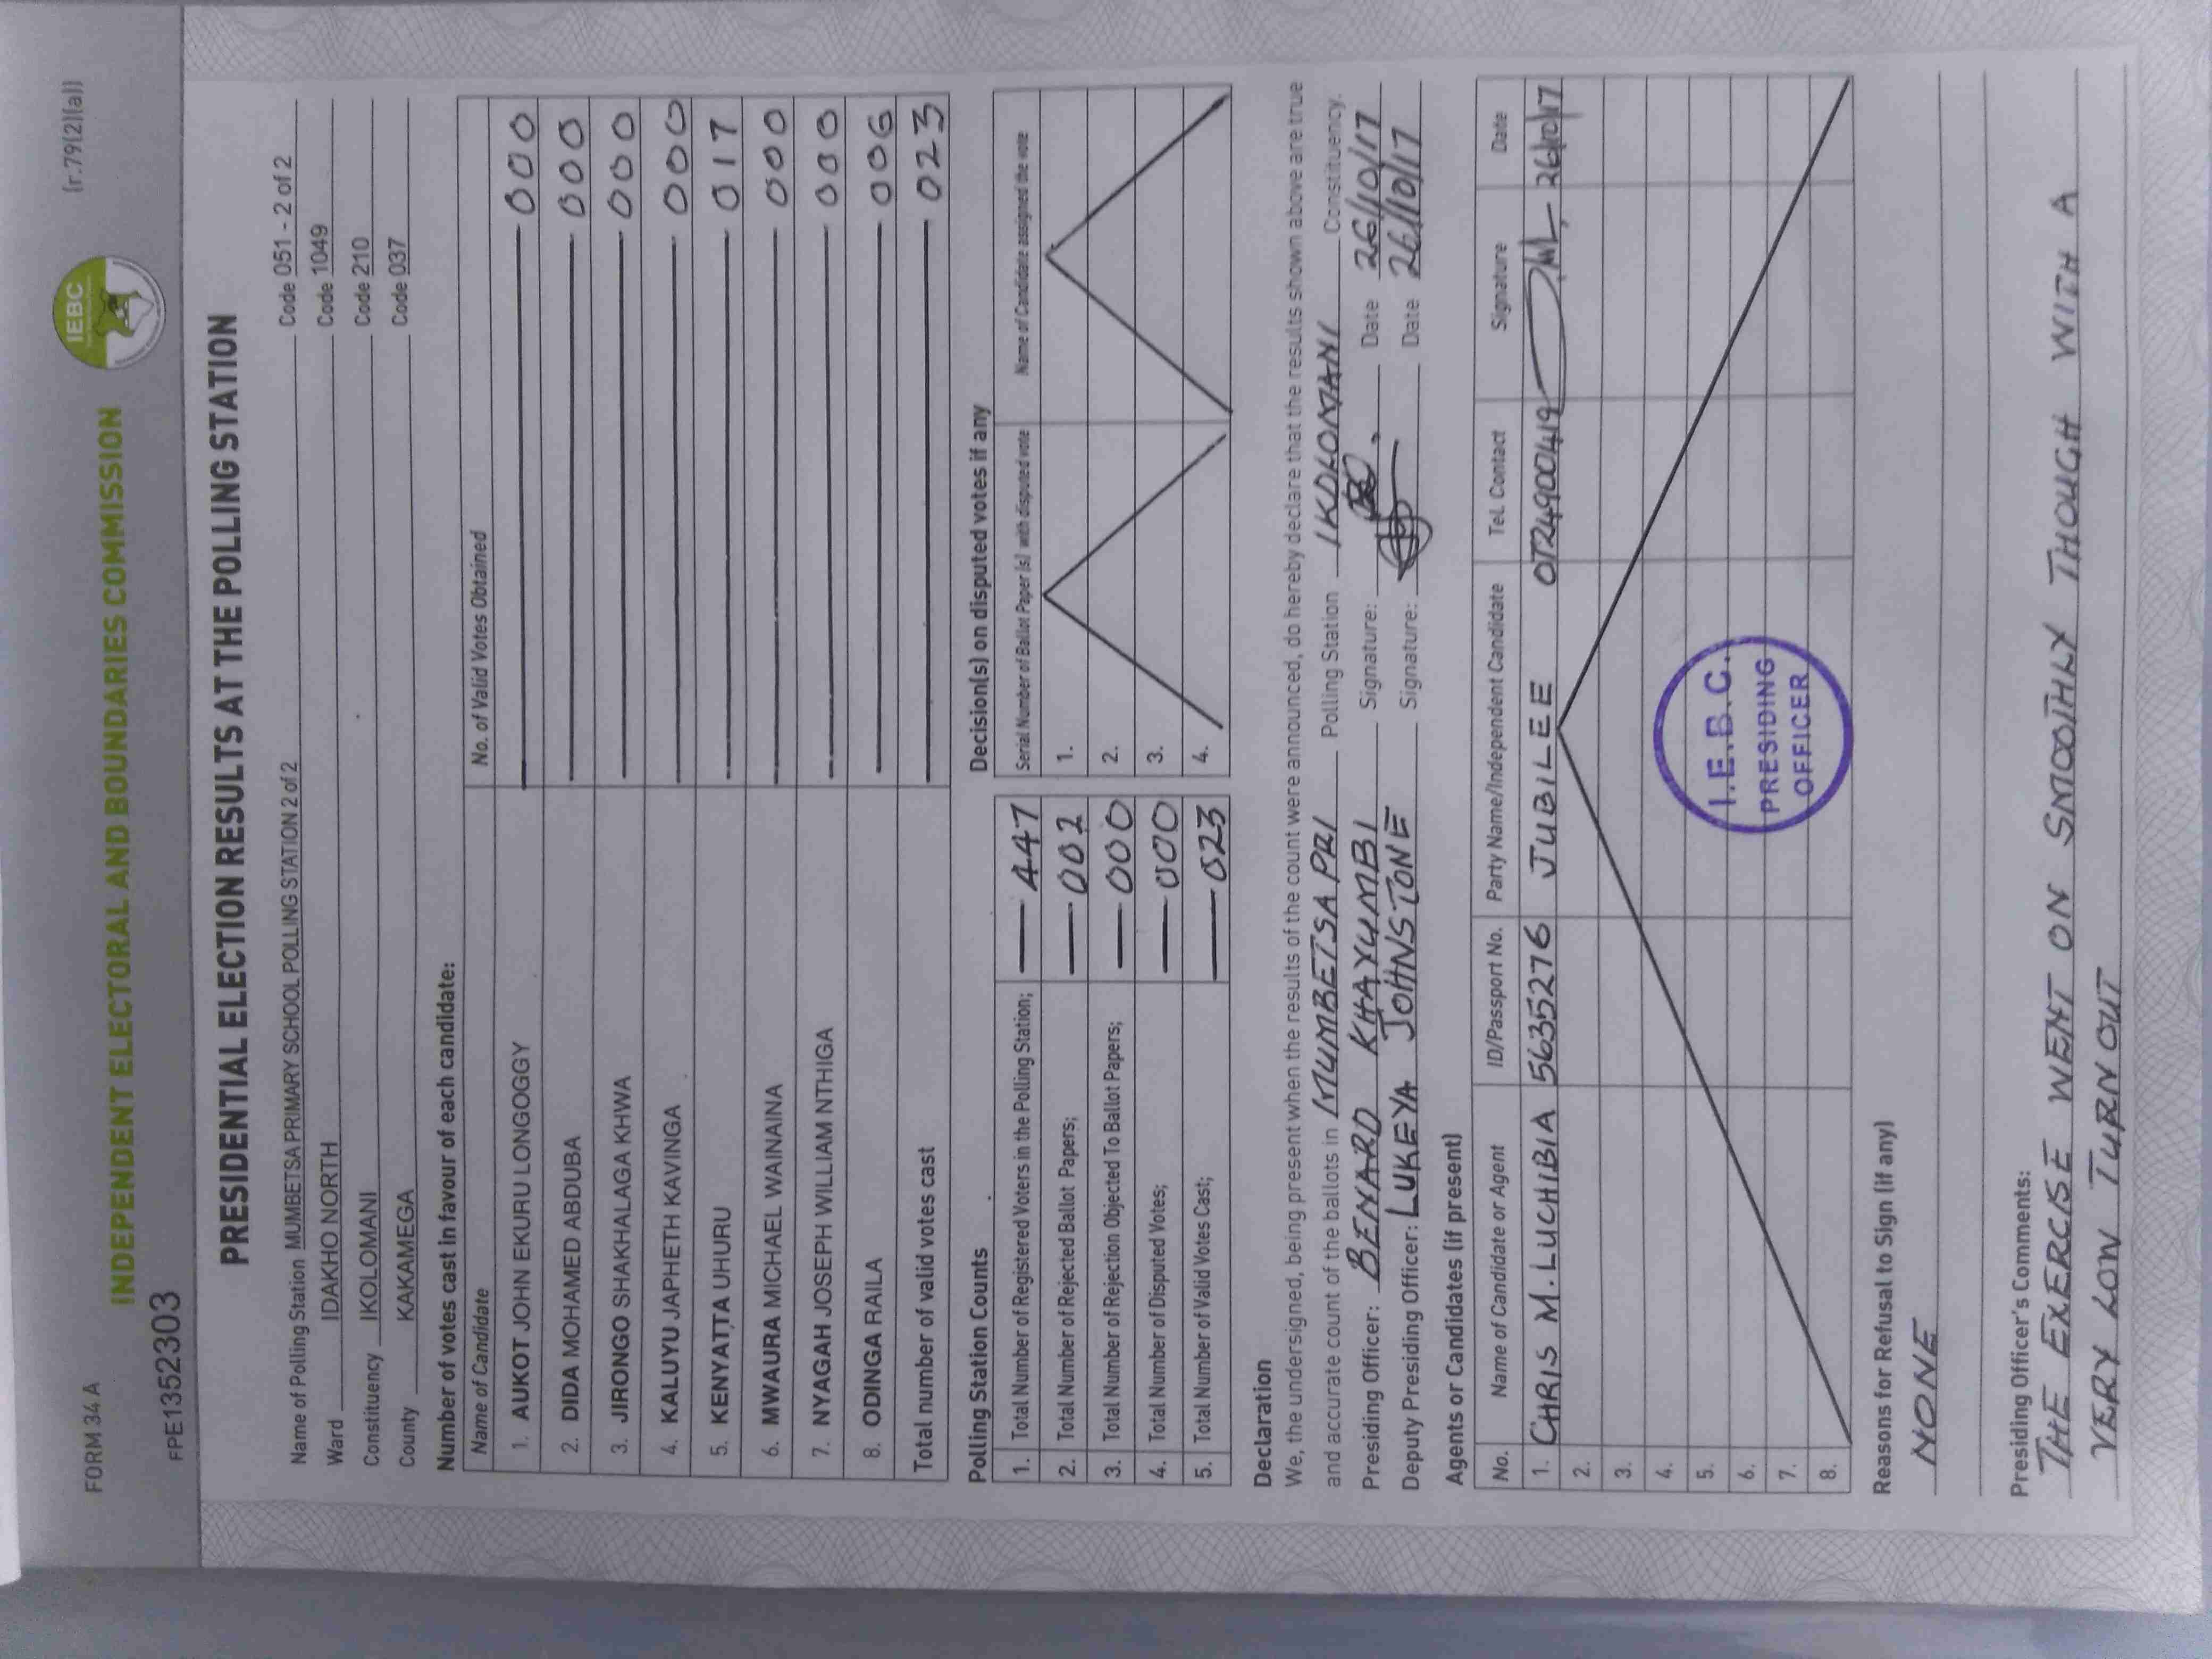 FORM 34 A
INDEPENDENT ELECTORAL AND BOUNDARIES COMMISSION
IEBC
(r.79(2)(a))
FPE1352303
PRESIDENTIAL ELECTION RESULTS AT THE POLLING STATION
Name of Polling Station MUMBETSA PRIMARY SCHOOL POLLING STATION 2 of 2 Code 051 - 2 of 2
Ward IDAKHO NORTH Code 1049
Constituency IKOLOMANI Code 210
County KAKAMEGA Code 037
Number of votes cast in favour of each candidate:
Name of Candidate No. of Valid Votes Obtained
1. AUKOT JOHN EKURU LONGOGGY 000
2. DIDA MOHAMED ABDUBA 000
3. JIRONGO SHAKHALAGA KHWA 000
4. KALUYU JAPHETH KAVINGA 000
5. KENYATTA UHURU 017
6. MWAURA MICHAEL WAINAINA 000
7. NYAGAH JOSEPH WILLIAM NTHIGA 000
8. ODINGA RAILA 006
Total number of valid votes cast 023
Polling Station Counts
1. Total Number of Registered Voters in the Polling Station; 447
2. Total Number of Rejected Ballot Papers; 002
3. Total Number of Rejection Objected To Ballot Papers; 000
4. Total Number of Disputed Votes; 000
5. Total Number of Valid Votes Cast; 023
Decision(s) on disputed votes if any
Serial Number of Ballot Paper (s) with disputed vote Name of Candidate assigned the vote
1.
2.
3.
4.
Declaration
We, the undersigned, being present when the results of the count were announced, do hereby declare that the results shown above are true
and accurate count of the ballots in MUMBETSA PRI Polling Station IKOLOMANI Constituency.
Presiding Officer: BENARD KHAYUMBI Signature: Date 26/10/17
Deputy Presiding Officer: LUKEYA JOHNSTONE Signature: Date 26/10/17
Agents or Candidates (if present)
No. Name of Candidate or Agent ID/Passport No. Party Name/Independent Candidate Tel. Contact Signature Date
1. CHRIS M. LUCHIBIA 5635276 JUBILEE 0724900419 26/10/17
2.
3.
4.
5.
6.
7.
8.
I.E.B.C.
PRESIDING
OFFICER
Reasons for Refusal to Sign (if any)
NONE
Presiding Officer's Comments:
THE EXERCISE WENT ON SMOOTHLY THOUGH WITH A
VERY LOW TURN OUT